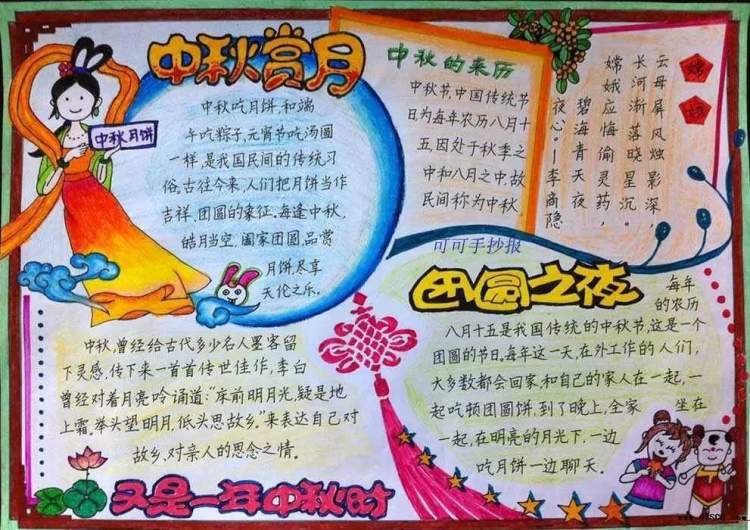 中秋赏月
中秋月饼
中秋吃月饼,和端
午吃粽子,元宵节吃汤圆
一样,是我国民间的传统习
俗。古往今来,人们把月饼当作
吉祥、团圆的象征。每逢中秋,
皓月当空,阖家团圆,品赏
月饼,尽享
天伦之乐。
中秋的来历
中秋节,中国传统节
日为每年农历八月十
五,因处于秋季之
中和八月之中,故
民间称为中秋。
嫦
娥
云母屏风烛影深,
长河渐落晓星沉。
嫦娥应悔偷灵药,
碧海青天夜
夜心。—李商隐
可可手抄报
团圆之夜
每年
的农历
八月十五是我国传统的中秋节,这是一个
团圆的节日,每年这一天,在外工作的人们,
大多数都会回家,和自己的家人在一起,一
起吃顿团圆饼,到了晚上,全家 坐在
一起,在明亮的月光下,一边
吃月饼一边聊天.
中秋,曾经给古代多少名人墨客留
下灵感,传下来一首首传世佳作,李白
曾经对着月亮吟诵道:"床前明月光,疑是地
上霜。举头望明月,低头思故乡。"来表达自己对
故乡,对亲人的思念之情。
又是一年中秋时